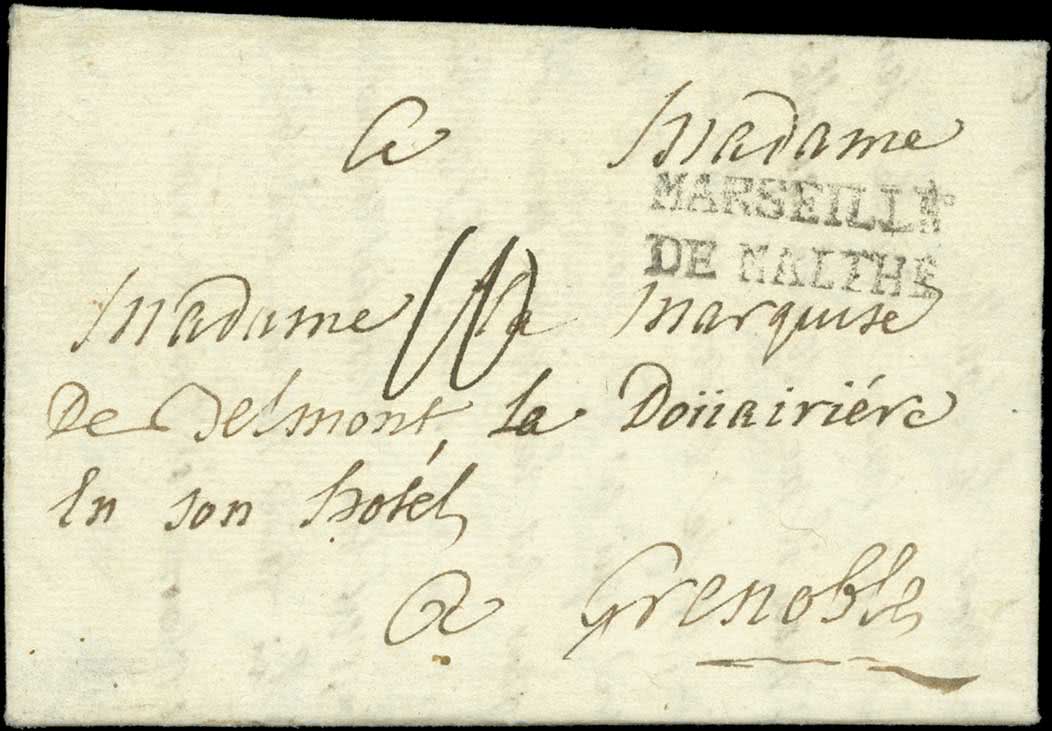 A Madame
MARSEILLE
DE MALTHE
Madame la marquise
De Belmont, la Doüairiére
En son hotél
a Grenoble